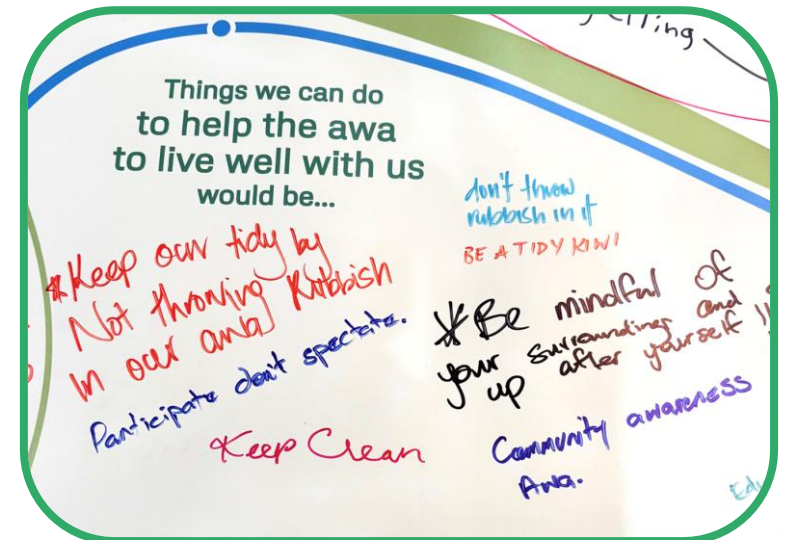 Things we can do
to help the awa
to live well with us
would be...
don't throw
rubbish in it
BE A TIDY KIWI
*Keep our tidy by
Not throwing Rubbish
in our awa
Participate don't spectate.
Keep Clean
*Be mindful of
your surroundings and
up after yourself !!
Community awareness
Awa.